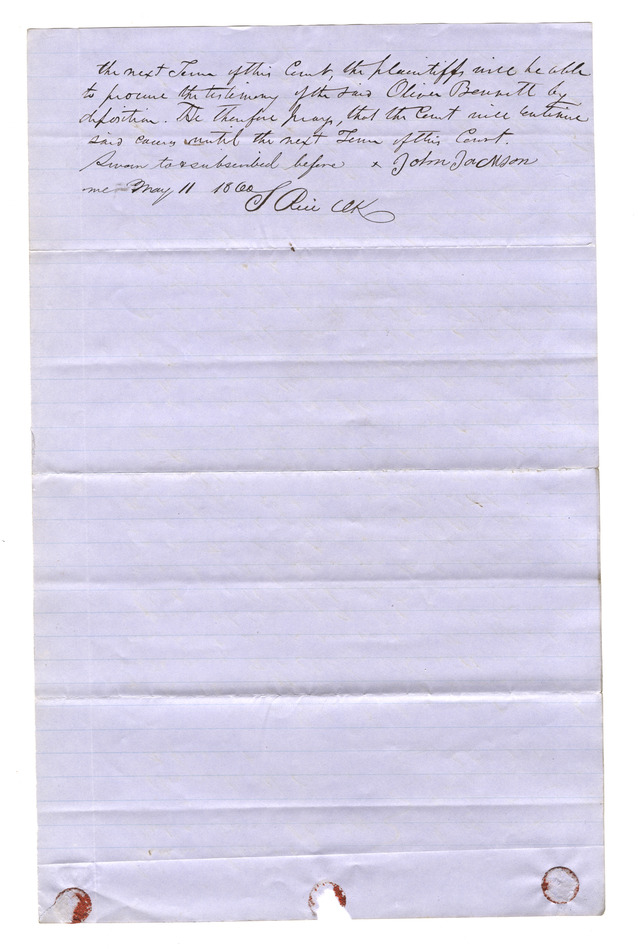 the next Term of this Court, the plaintiffs will be able
to procure the testimony of the said Oliver Bennett by
deposition. He therefore prays, that the Court will continue
said cause until the next Term of this Court.
Sworn to & subscribed before x John Jackson
me May 11 1860 S Rice Clk